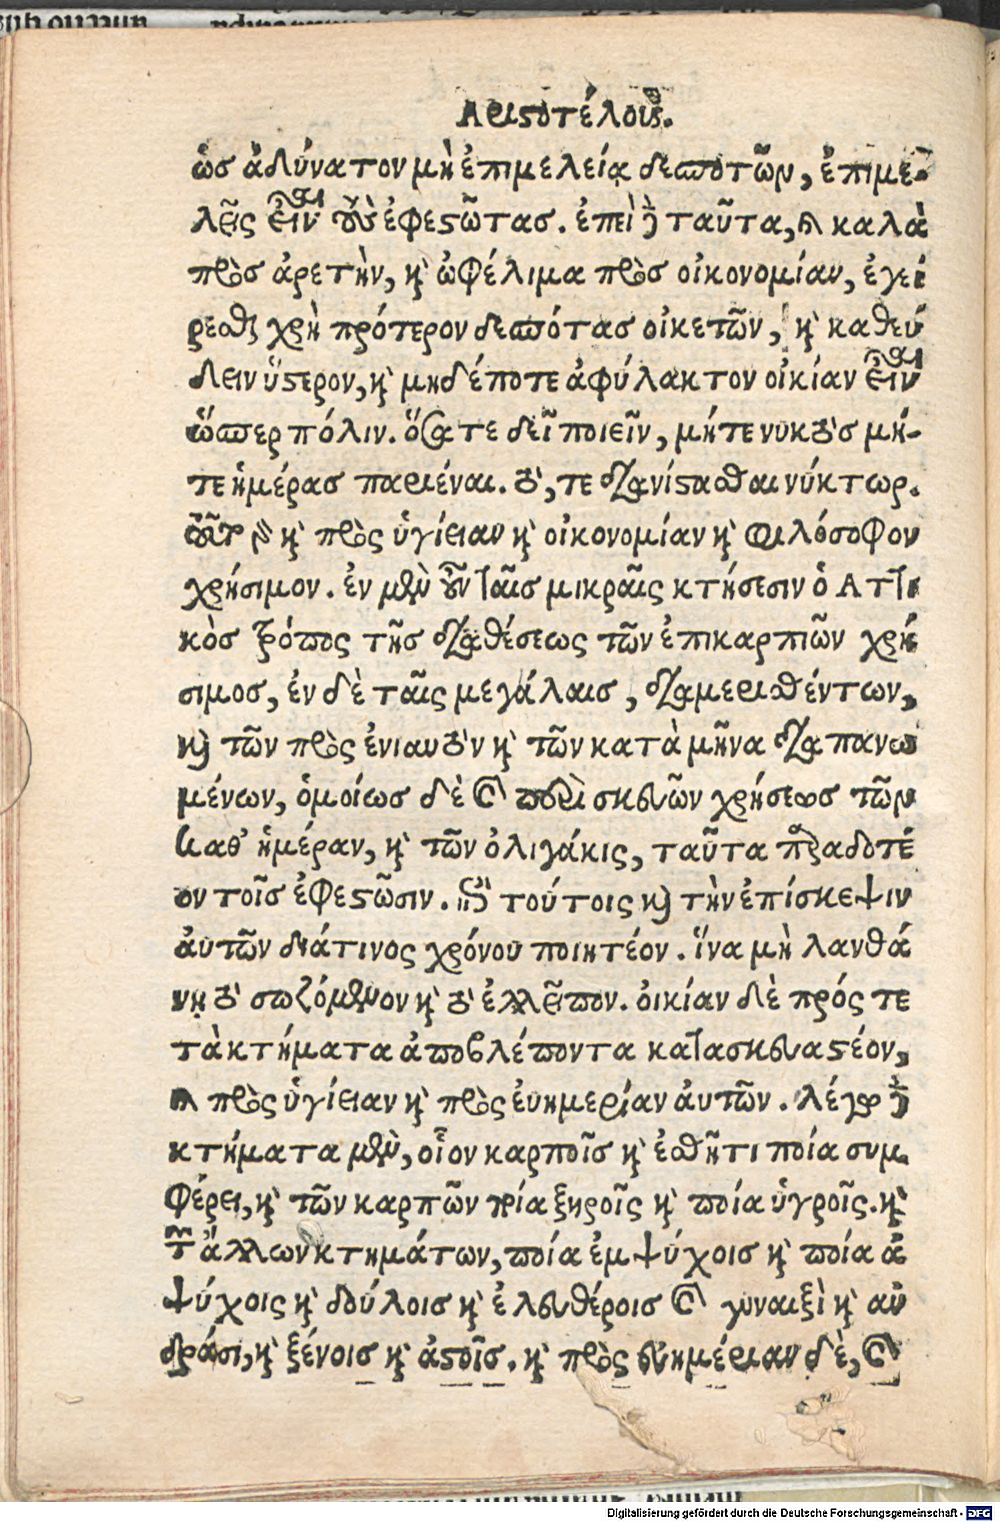 Ἀριστοτέλους.
ὡς ἀδύνατον μὴ ἐπιμελεία δεσποτῶν, ἐπιμε-
λεῖς εἶναι τοὺς ἐφεστῶτας. ἐπεὶ δὲ ταῦτα, καὶ καλὰ
πρὸς ἀρετὴν, καὶ ὠφέλιμα πρὸς οἰκονομίαν, ἐγεί
ρεσθαι χρὴ πρότερον δεσπότας οἰκετῶν, καὶ καθεύ
δειν ὕστερον, καὶ μηδέποτε ἀφύλακτον οἰκίαν εἶναι
ὥσπερ πόλιν. ὅσα τε δεῖ ποιεῖν, μήτε νυκτὸς μή-
τε ἡμέρας παριέναι. τό, τε διανίστασθαι νύκτωρ.
τοῦτο γὰρ καὶ πρὸς ὑγίειαν καὶ οἰκονομίαν καὶ φιλόσοφον
χρήσιμον. ἐν μὲν οὖν ταῖς μικραῖς κτήσεσιν ὁ Ἀττι
κὸς τρόπος τῆς διαθέσεως τῶν ἐπικαρπιῶν χρή
σιμος, ἐν δὲ ταῖς μεγάλαις, διαμερισθέντων,
καὶ τῶν πρὸς ἐνιαυτὸν καὶ τῶν κατὰ μῆνα δαπανω
μένων, ὁμοίως δὲ καὶ περὶ σκευῶν χρήσεως τῶν
καθ' ἡμέραν, καὶ τῶν ὀλιγάκις, ταῦτα παραδοτέ
ον τοῖς ἐφεστῶσιν. ἐπὶ τούτοις καὶ τὴν ἐπίσκεψιν
αὐτῶν διάτινος χρόνου ποιητέον. ἵνα μὴ λανθά
νῃ τὸ σωζόμενον καὶ τὸ ἐλλεῖπον. οἰκίαν δὲ πρός τε
τὰ κτήματα ἀποβλέποντα κατασκευαστέον,
καὶ πρὸς ὑγίειαν καὶ πρὸς εὐημερίαν αὐτῶν. λέγω δὲ
κτήματα μὲν, οἷον καρποῖς καὶ ἐσθῆτι ποία συμ
φέρει, καὶ τῶν καρπῶν ποία ξηροῖς καὶ ποία ὑγροῖς. καὶ
τῶν ἄλλων κτημάτων, ποία ἐμψύχοις καὶ ποία ἀ
ψύχοις καὶ δούλοις καὶ ἐλευθέροις καὶ γυναιξὶ καὶ ἀν
δράσι, καὶ ξένοις καὶ ἀστοῖς. καὶ πρὸς εὐημερίαν δὲ, καὶ
Digitalisierung gefördert durch die Deutsche Forschungsgemeinschaft - DFG